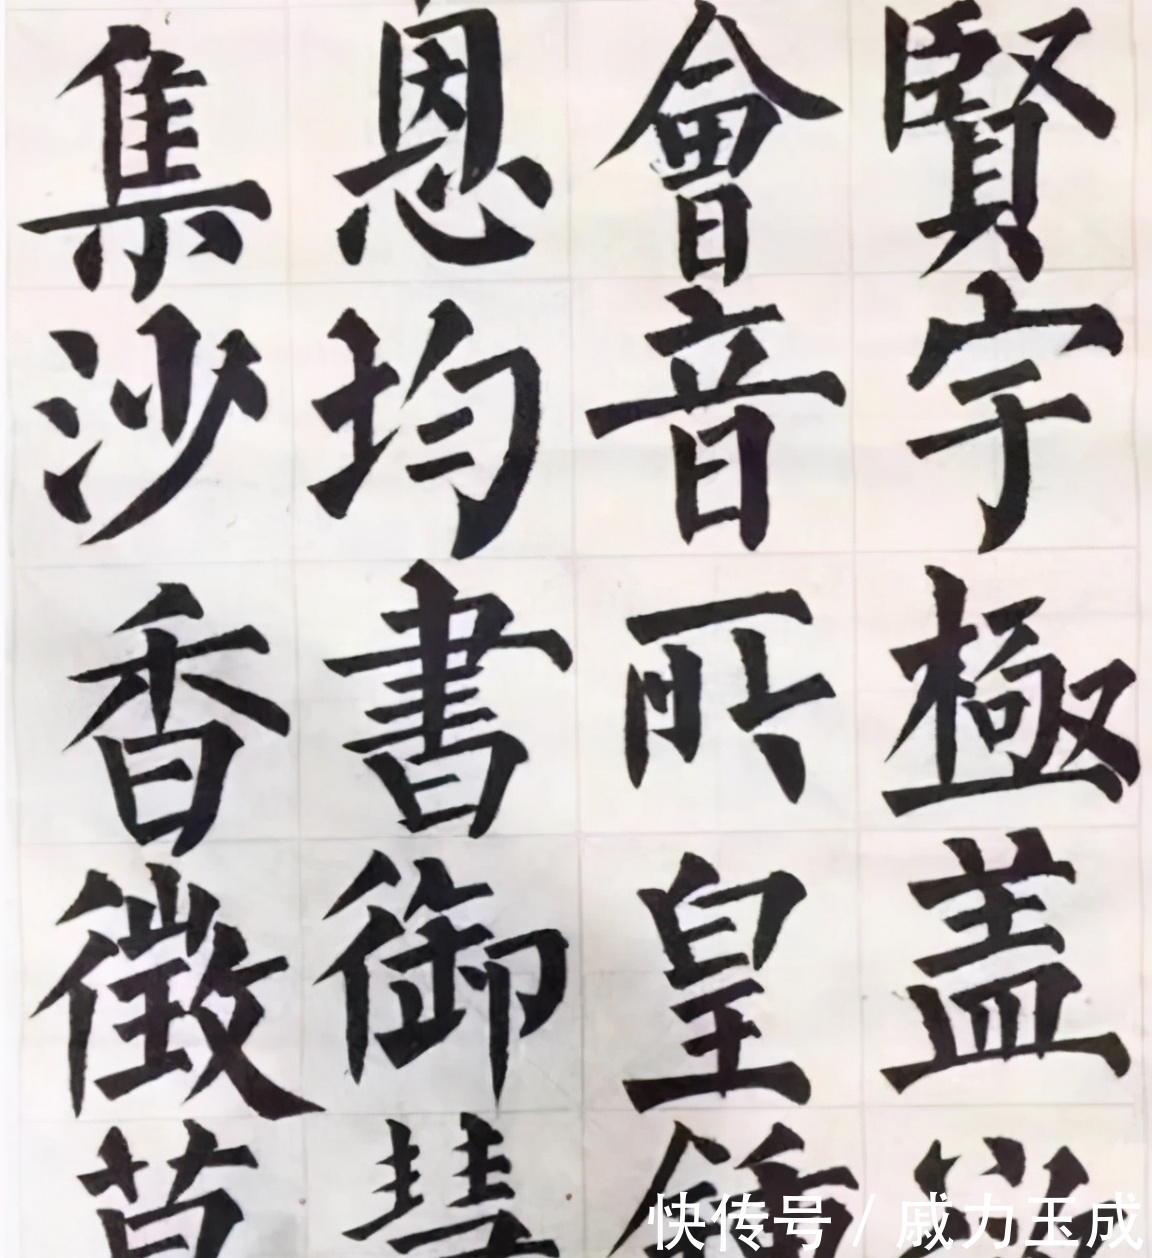 賢宇極盖
會音所皇
恩均書御
集沙香徵
快传号 / 戚力玉成